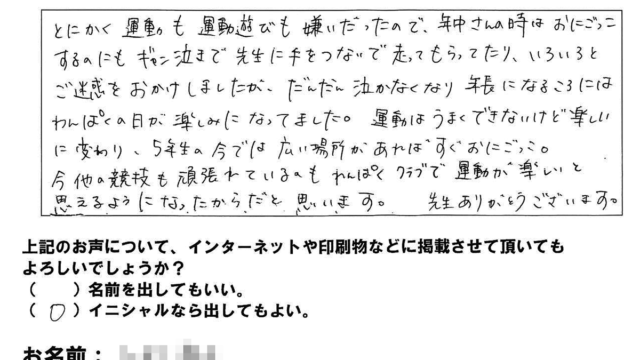 とにかく運動も運動遊びも嫌いだったので、年中さんの時はおにごっこ
するのにもギャン泣きで先生に手をつないで走ってもらってたり、いろいろと
ご迷惑をおかけしましたが、だんだん泣かなくなり年長になるころには
わんぱくの日が楽しみになってました。運動はうまくできないけど楽しい
に変わり、5年生の今では広い場所があればすぐおにごっこ。
今他の競技も頑張れているのもわんぱくクラブで運動が楽しいと
思えるようになったからだと思います。 先生ありがとうございます。
上記のお声について、インターネットや印刷物などに掲載させて頂いても
よろしいでしょうか？
（　　）名前を出してもいい。
（ ○ ）イニシャルなら出してもよい。
お名前：